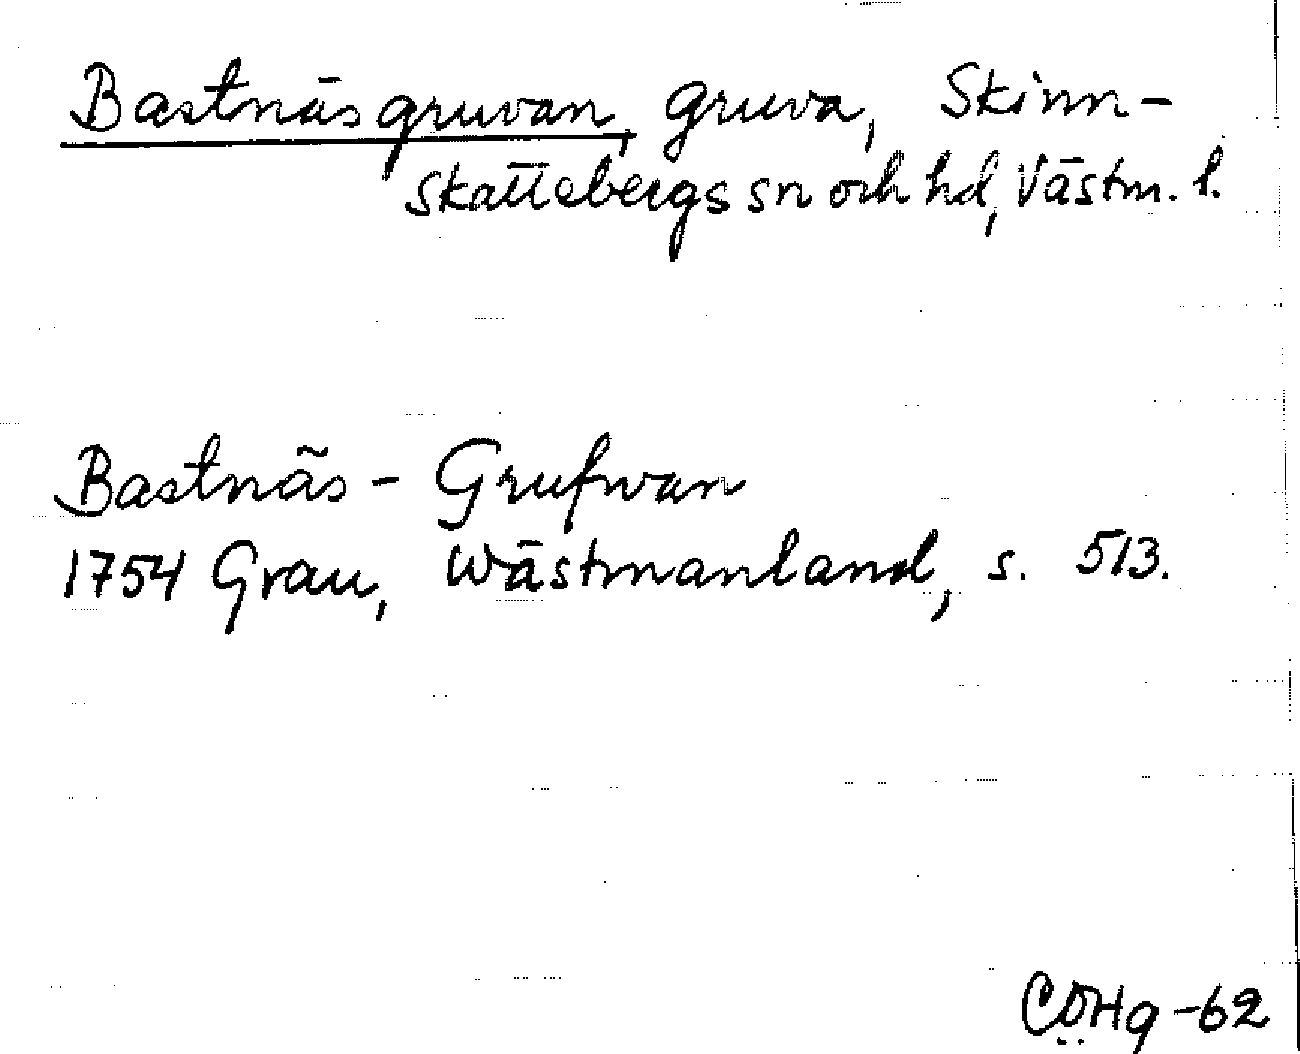 Bastnäsgruvan, gruva, Skinn-
skattebergs sn och hd, Västm. l.
Bastnäs - Grufwan
1754 Grau, Wästmanland, s. 513.
CÖHg -62